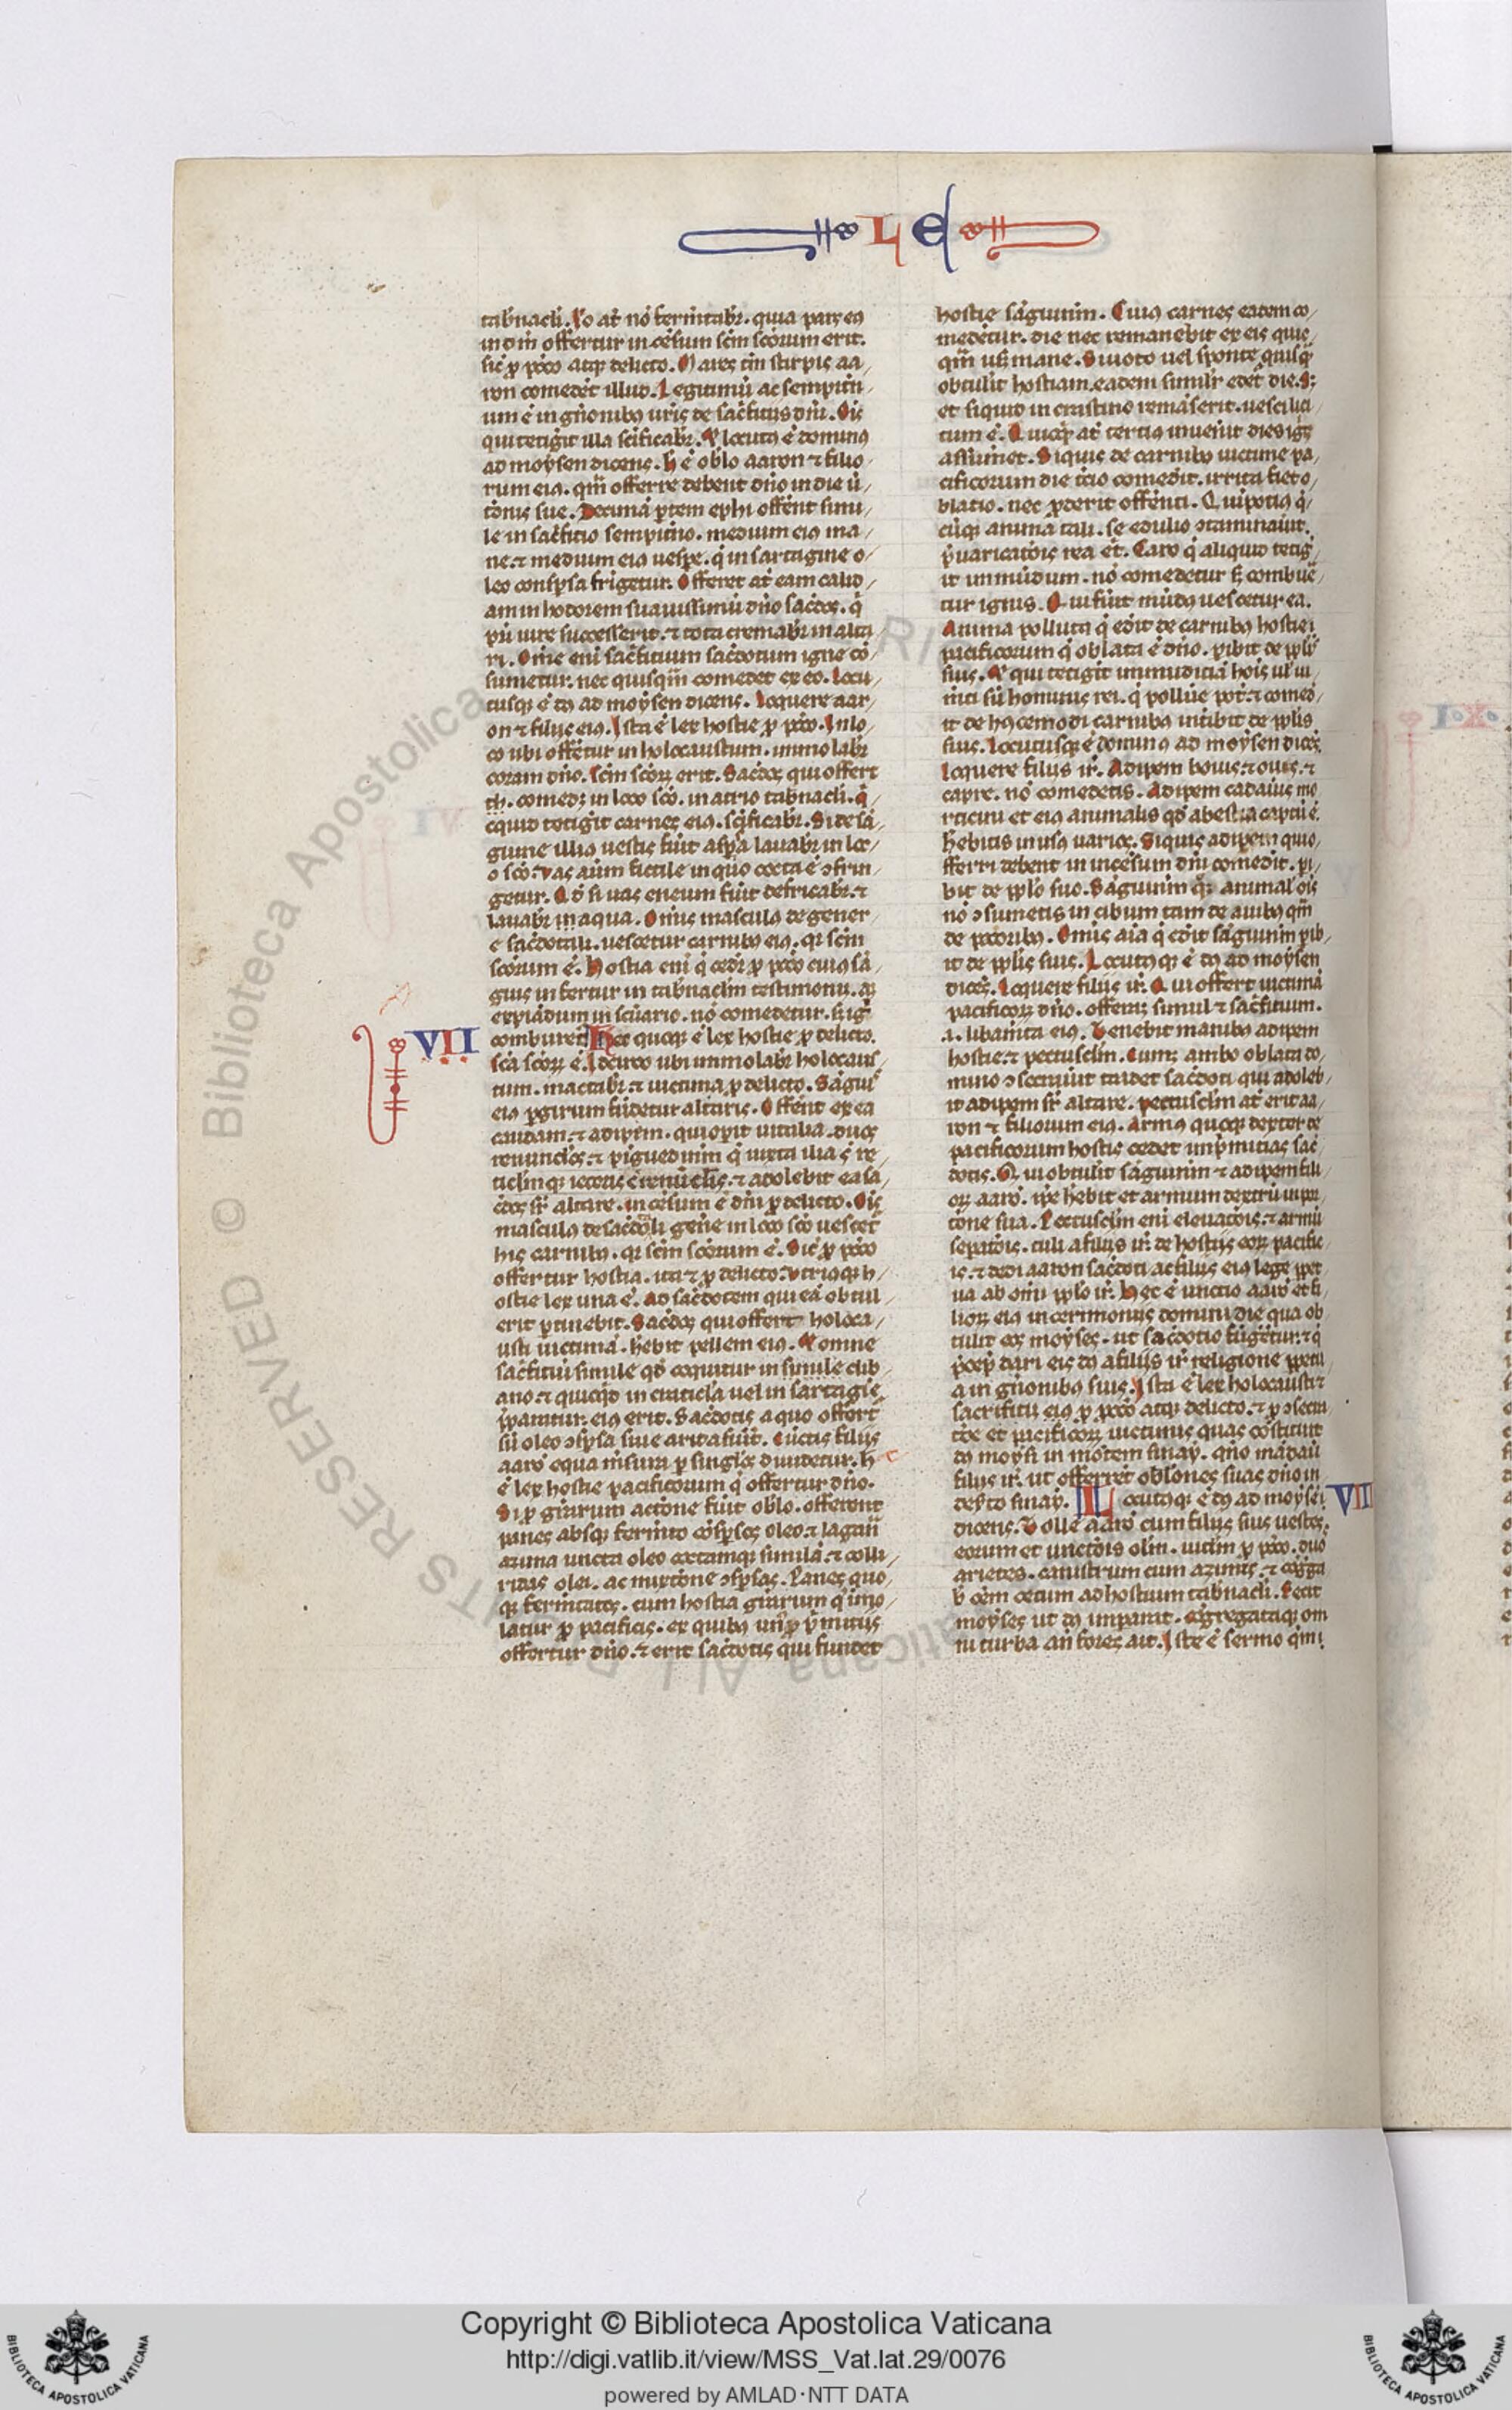 L E
tab̄nacli. Iō at̄ nō fermtabr̄. quia pars eꝯ
in dn̄i offertur incēsum scm̄ scōrum erit.
sic̄ ꝓ pctō atqꝫ delicto. Mares tm̄ stirpis aa/
ron comedēt illud. Legitimū ac sempitn̄/
um ē in gn̄onibꝯ uris de sac̄ficiis dn̄i. Oīs
qui tetiḡit illa sc̄ificabr̄. Et locutꝯ ē dominus
ad moysen dicens. h̄ ē oblō aaron ⁊ filio/
rum eiꝯ. qm̄ offerre debent dn̄o in die ū/
ctōnis sue. Decimā ꝑtem ephi offer̄nt simi/
le in sac̄ficio sempitn̄o. medium eiꝯ ma/
ne. ⁊ medium eiꝯ uesꝑe. q̄ in sartagine o/
leo consꝑsa frigetur. Offeret at̄ eam calid/
am in hodorem suauissimū dn̄o sac̄dos. q̄
pr̄i iure successerit. ⁊ tota cremabr̄ in alta
ri. Om̄e eni sac̄ficium sac̄dotum igne cō/
sumetur. nec quisqm̄ comedet ex eo. Locu/
tusqꝫ ē dn̄s ad moysen dicens. Loquere aar/
on ⁊ filiis eiꝯ. Ista ē lex hostie ꝓ pctō. In lo/
co ubi offer̄tur in holocaustum. immolabr̄
coram dn̄o. scm̄ scōrꝫ erit. Sac̄dos qui offert
comedꝫ in loco scō. in atrio tab̄nacli. q̄/
cquid tetigit carnes eiꝯ. sc̄ificabr̄. Si de sā/
guine illiꝯ uestis fūit aspsa lauabr̄ in loc/
o scō. uas aūm fictile in quo cocta ē ɔfrin/
getur. Qd̄ si uas eneum fūit defricabr̄. ⁊
lauabr̄ in aqua. Omis masculꝯ de gener/
e sac̄dotali. uescetur carnibꝯ eiꝯ. qr̄ scm̄
scōrum ē. Hostia eni q̄ cedr̄ ꝓ pctō cuiꝯ sā/
guis infertur in tab̄naclm̄ testimonii. ad
expiādum in sc̄uario. nō comedetur. sꝫ iḡ
comburetr̄ Hec quoqꝫ ē lex hostie ꝓ delicto.
VII
scā scōrꝫ ē. Idcirco ubi immolabr̄ holocaus/
tum. mactabr̄ ⁊ uictima ꝓ delicto. Sāguis
eiꝯ ꝑ girum fūdetur altaris. Offer̄nt ex ea
caudam. ⁊ adipem. qui oꝑit uitalia. duos
renunclos. ⁊ pīguedinem q̄ iuxta ilia ē. re/
ticlmqꝫ iecoris cū renūclis. ⁊ adolebit ea sa/
c̄dos sr̄ altare. incēsum ē dn̄i ꝓ delicto. Oīs
masculꝯ de sac̄dotāli gen̄e in loco scō uescet̄
his carnibꝯ. qr̄ scm̄ scōrum ē. Sic̄ ꝓ pctō
offertur hostia. ita ⁊ ꝓ delicto. utriusqꝫ h/
ostie lex una ē. Ad sac̄dotem qui eā obtul/
erit ꝑtinebit. Sac̄dos qui offert holoca/
usti uictimā. h̄ebit pellem eiꝯ. Et omne
sac̄ficiū simile qd̄ coquitur in simile clib/
ano. ⁊ quicqꝫ in craticla uel in sartagīe
p̄paratur. eiꝯ erit. Sac̄dotis a quo offert̄
siū oleo ɔsꝑsa siue arida fūit. Cūctis filiis
aarō equa m̄sura ꝑ singlos diuidetur. h̄
ē lex hostie pacificorum q̄ offertur dn̄o.
Si ꝓ gr̄arum actōne fūit oblō. offerent
panes absqꝫ fermto cōsꝑsos oleo. ⁊ lagan̄
azima uncta oleo coctamqꝫ similā. ⁊ colli/
ridas olei. ac mixtōne ɔsꝑsas. Panes quo/
qꝫ fermtatos. cum hostia gr̄arum q̄ imo/
latur ꝓ pacificis. ex quibꝯ unꝰ ꝓ p̄mitiis
offertur dn̄o. ⁊ erit sac̄dotis qui fundet
hostie sāguinm. Cuiꝯ carnes eadem co/
medētur. die nec remanebit ex eis quic/
qm̄ usqꝫ mane. Si uoto uel sponte quisqꝫ
obtulit hostiam. eadem similr̄ edet̄ die. Sꝫ
et siquid in crastino remāserit. uesci lici/
tum ē. Quicqd̄ at̄ tercius inuen̄it dies igꝫ
assumet. Siquis de carnibꝯ uictime pa/
cificorum die t̄cio comedit. irrita fiet o/
blatio. nec ꝓderit offer̄nti. Quipotius q̄/
cūqꝫ anima tali. se edulio ɔtaminaūit.
p̄uaricatōis rea er̄t. Caro q̄ aliquid tetiḡ/
it immūdum. nō comedetur sꝫ combuē/
tur ignis. Qui fūit mūdꝯ uescetur ea.
Anima polluta q̄ edit de carnibꝯ hostie
pacificorum q̄ oblata ē dn̄o. ꝑibit de ppl̄is
suis. Et qui tetigit immūdiciā hoīs ul̄ iu/
mti siū hominis rei. q̄ polluē pōt. ⁊ comed̄/
it de hꝯcemodi carnibꝯ int̄ibit de ppl̄is
suis. Locutusqꝫ ē dominꝯ ad moysen dicēs.
Loquere filiis ir̄l. Adipem bouis. ⁊ ouis. ⁊
capre. nō comedetis. Adipem cadaūis mo
rticini et eiꝯ animalis qd̄ a bestia captū ē.
h̄ebitis in usꝯ uarios. Siquis adipem qui o/
fferri debent in incēsum dn̄i comedit. ꝑi/
bit de ppl̄o suo. Sāguinm qꝫ animal̄ ois
nō ɔsumetis in cibum tam de auibꝯ qm̄
de pecoribꝯ. Omis aīa q̄ edit sāguinm ꝑib/
it de ppl̄is suis. Locutꝯqꝫ ē dn̄s ad moysen
dicēs. Loquere filiis ir̄l. Qui offert uictimā
pacificorꝫ dn̄o. offerat simul ⁊ sac̄ficium.
.i. libamta eiꝯ. Tenebit manibꝯ adipem
hostie. ⁊ pectusclm. Cumqꝫ ambo oblata do/
mino ɔsecrauit tradet sac̄doti qui adoleb/
it adipem sr̄ altare. Pectusclm at̄ erit aa/
ron ⁊ filiorum eiꝯ. Armꝯ quoqꝫ dexter de
pacificorum hostiis cedet in p̄mitias sac̄/
dotis. Qui obtulit sāguinm ⁊ adipem fili/
orꝫ aarō. ip̄e h̄ebit et armum dextrū in por/
tione sua. Pectusclm eni eleuatōis. ⁊ armū
sepatōis. tuli a filiis ir̄l. de hostiis eorꝫ pacific/
is. ⁊ dedi aaron sac̄doti ac filiis eiꝯ lege ꝑpet/
ua ab om̄i ppl̄o ir̄l. Hec ē unctio aarō et fi/
liorꝫ eiꝯ in cerimoniis domini die qua ob
tulit eos moyses. ut sac̄dotio fūgētur. ⁊ q̄
p̄cep̄ dari eis dn̄s a filiis ir̄l religione ꝑpetu/
a in gn̄onibꝯ suis. Ista ē lex holocausti ⁊
sacrificii eiꝯ ꝓ pctō atqꝫ delicto. ⁊ ꝓ ɔsecra/
tōe et pacificorꝫ uictimis quas cōstituit
dn̄s moysi in mōtem sinay. qn̄o mādaū
filiis ir̄l. ut offerrēt oblōnes suas dn̄o in
deẜto sinay. Locutꝯqꝫ ē dn̄s ad moysē
VII
dicens. Tolle aarō cum filiis suis uestes.
eorum et unctōis olm. uitlm ꝓ pctō. duo
arietes. canistrum cum azimis. ⁊ cōgga
b̄ oēm cetum ad hostium tab̄nacli. Fecit
moyses ut dn̄s impar̄at. Cōgregataqꝫ om
ni turba an̄ fores ait. Iste ē sermo qm̄
Copyright © Biblioteca Apostolica Vaticana
http://digi.vatlib.it/view/MSS_Vat.lat.29/0076
powered by AMLAD·NTT DATA